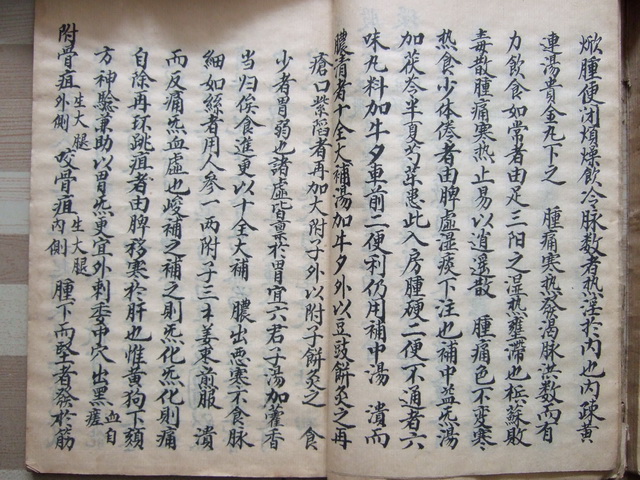 焮腫便闭煩燥飲冷脉数者热淫於内也内疎黄
連湯貴金丸下之　腫痛寒热發渴脉洪数而有
力飲食如常者由足三阳之湿热壅滞也梹蘇敗
毒散腫痛寒热止易以逍遥散　腫痛色不变寒
热食少体倦者由脾虚湿痰下注也補中益炁湯
加茯苓半夏芍药患此入房腫硬二便不通者六
味丸料加牛夕車前二便利仍用補中湯　潰而
膿清者十全大補湯加牛夕外以豆豉餅灸之再
瘡口紫陷者再加大附子外以附子餅灸之　食
少者胃弱也諸虚皆禀於胃宜六君子湯加藿香
当归俟食進更以十全大補　膿出恶寒不食脉
細如絲者用人参一两附子三个姜枣煎服　潰
而反痛炁血虚也峻補之補之則炁化炁化則痛
自除再环跳疽者由脾移寒於肝也惟黄狗下頦
方神驗兼助以胃炁更宜外刺委中穴出黑血自瘥
附骨疽生大腿外側咬骨疽生大腿内側腫下而坚者發於筋